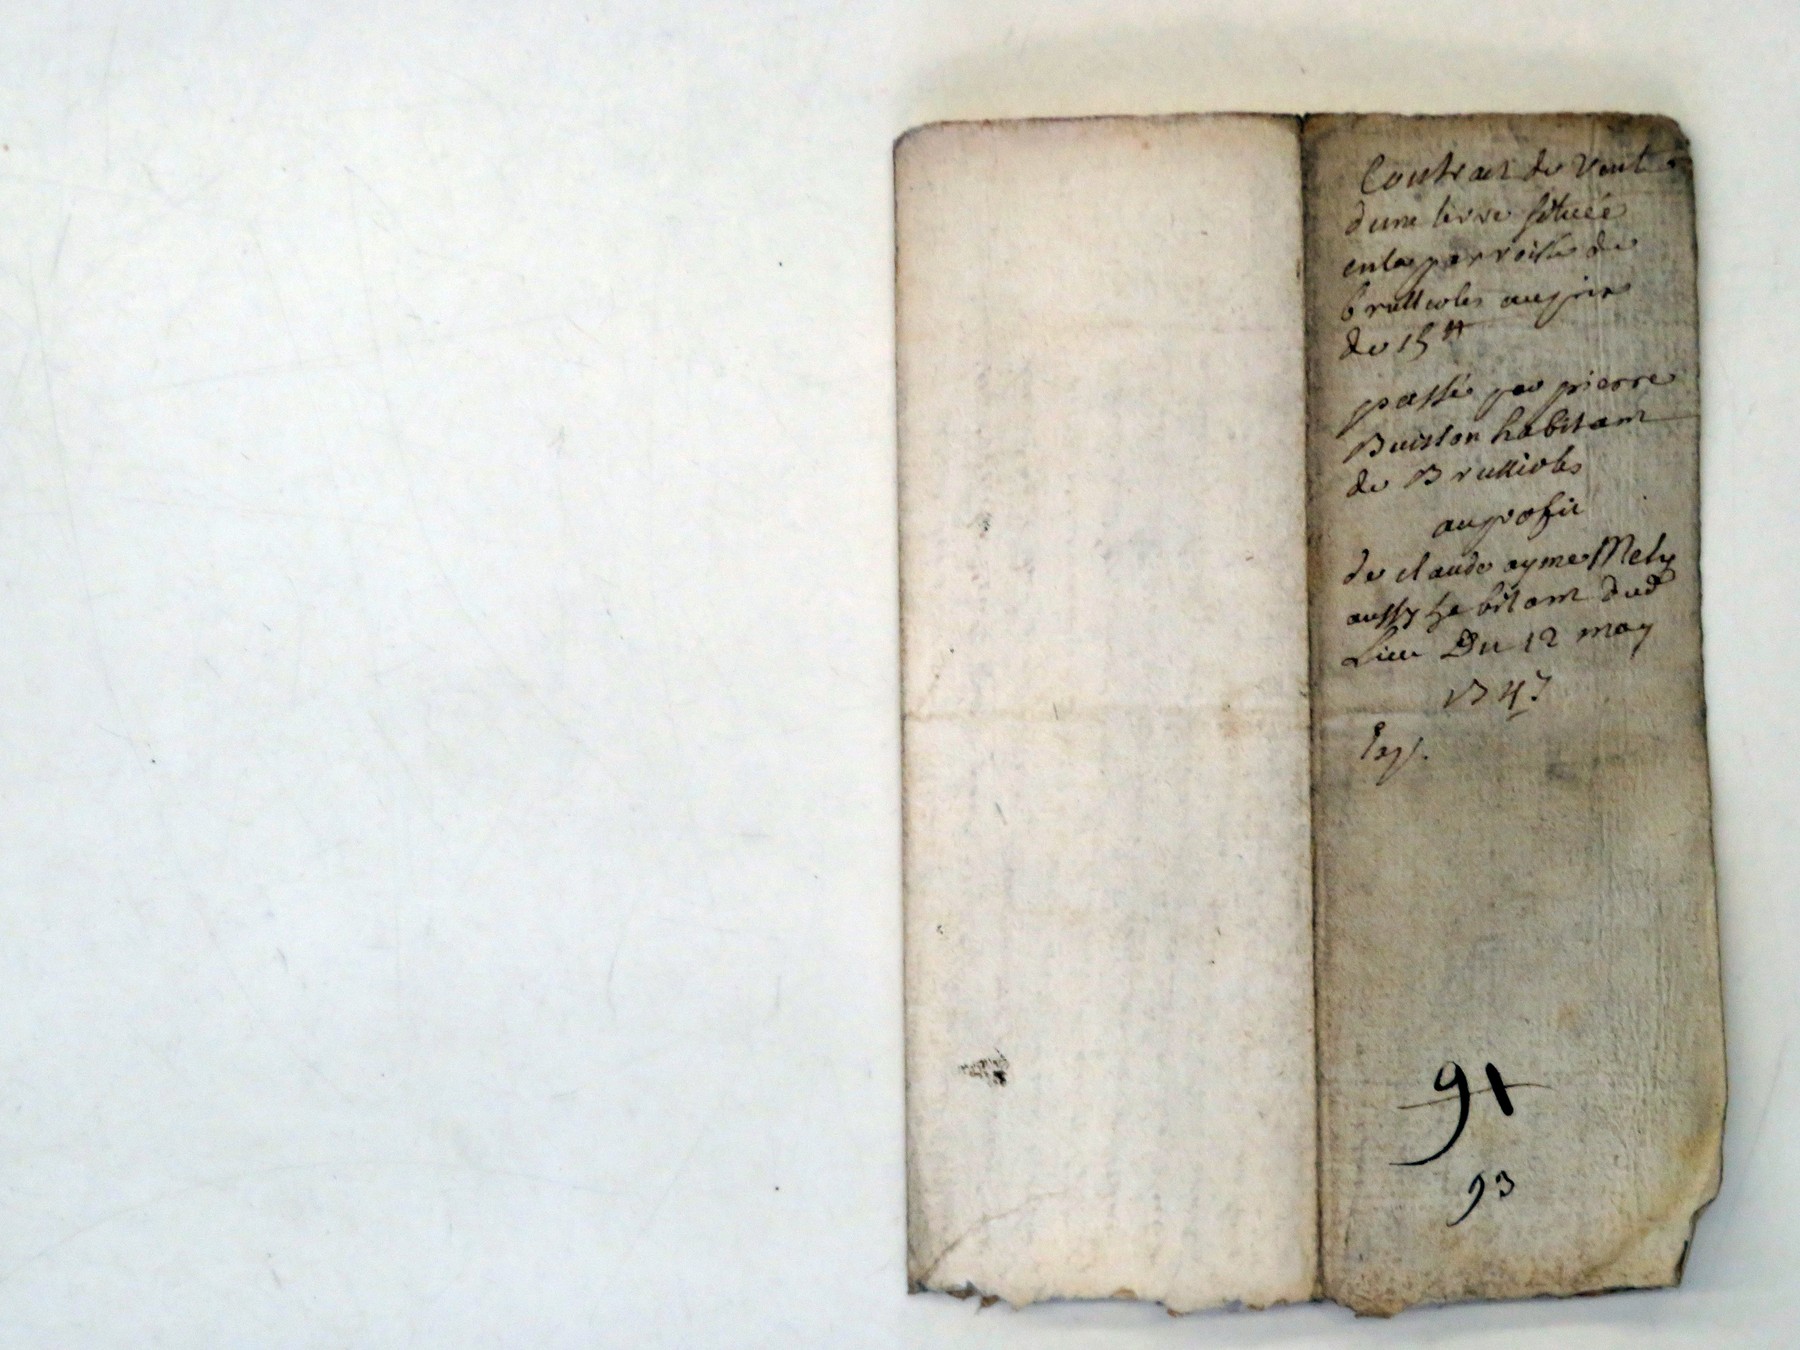 Contrat de vente
dune terre situéé
enla parroisse de
brullioles au prix
de 15 ₶
passé par pierre
Buisson habitant
de Brullioles
au profit
de claude ayme Mely
aussy habitant dud
Lieu Du 12 may
1747
Exp.
91
93